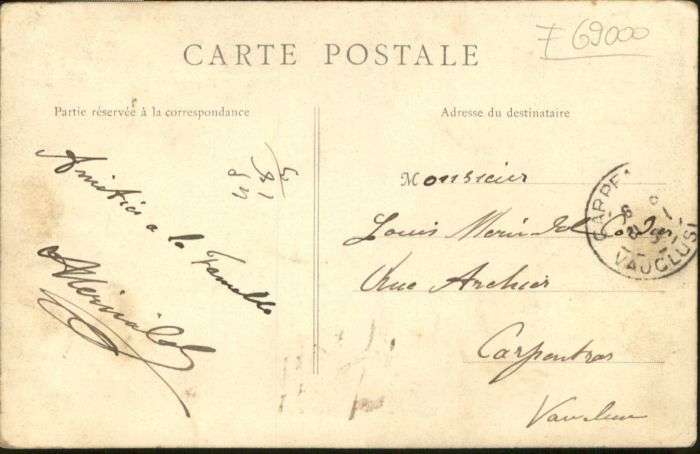 CARTE POSTALE
7 69000
Partie réservée à la correspondance
Adresse du destinataire
Amitiés a la famille
Monsieur
Louis
Rue Archier
Carpentras
Vaucluse
CARPE
VAUCLUS